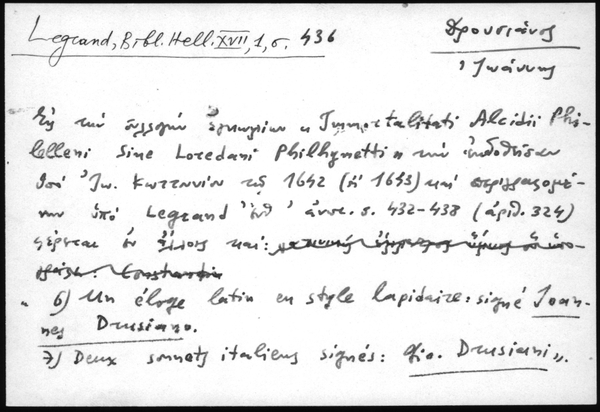 Legrand, Bibl. Hell. XVII, 1, σ. 436
Δρουσιάνος
Ἰωάννης
Εἰς τὴν συλλογὴν ἐγκωμίων « Immortalitati Alcidii Phi-
lelleni sine Loredani Philhynetti » τὴν ἐκδοθεῖσαν
ὑπό Ἰω. Κωττουνίου τῷ 1642 (ἢ 1643) καὶ περιγραφομέ-
νην ὑπό Legrand ἔνθ' ἀνωτ. σ. 432-438 (ἀριθ. 324)
φέρεται ἐν ἄλλοις καί:
" 6) Un éloge latin en style lapidaire: signé Joan-
nes Drusiano.
7) Deux sonnets italiens signés: Gio. Drusiani „.